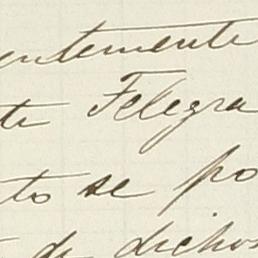 entemente
te Telegra
to se po
de dichos